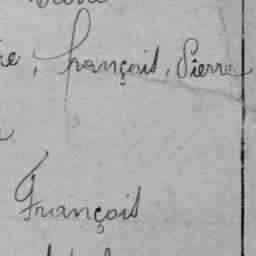 François, Pierre
François